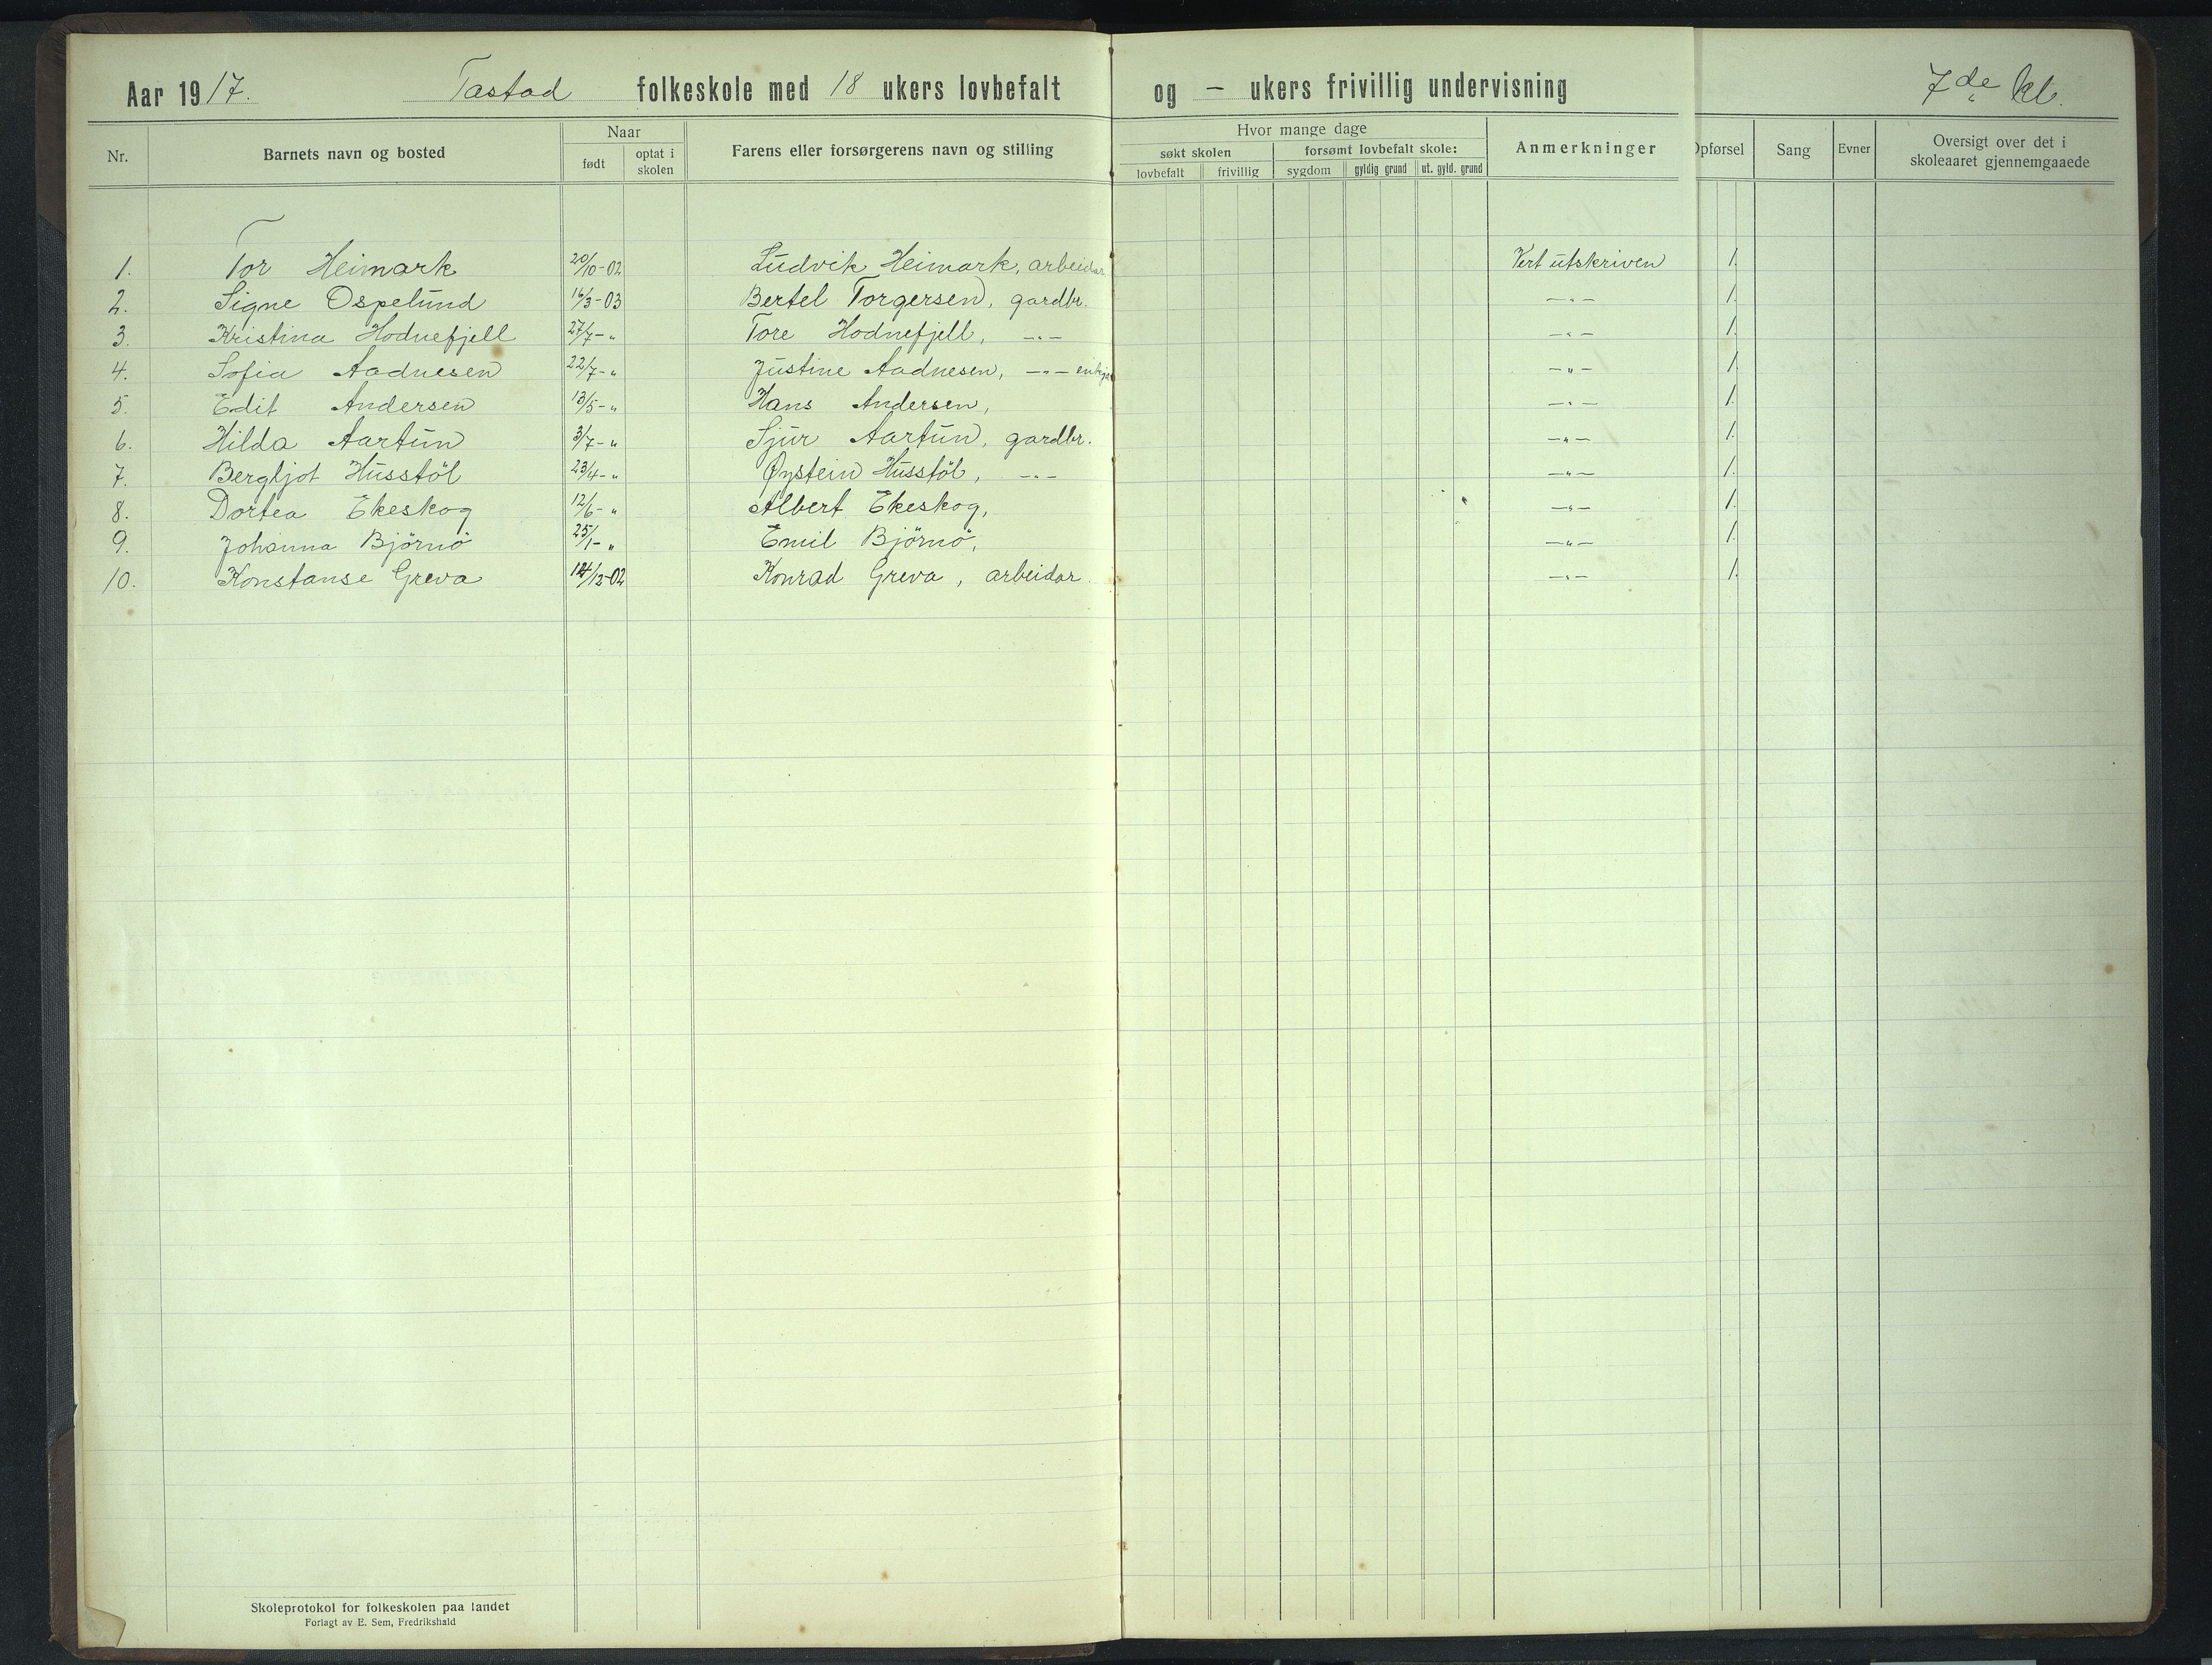 Aar 1917. Tastad folkeskole med 18 ukers lovbefalt og - ukers frivillig undervisning 7de kl.
Nr. Barnets navn og bosted Naar født optat i skolen Farens eller forsørgerens navn og stilling Hvor mange dage søkt skolen lovbefalt frivillig forsømt lovbefalt skole: sygdom gyldig grund ut. gyld. grund Anmerkninger Opførsel Sang Evner Oversigt over det i skoleaaret gjennemgaaede
1. Tor Heimark 20/10-02 Ludvik Heimark, arbeidar Vert utskriven 1.
2. Signe Ospelund 16/3-03 Bertel Torgersen, gardbr. —"— 1.
3. Kristina Hodnefjell 27/7-" Tore Hodnefjell, —"— —"— 1.
4. Sofia Aadnesen 22/7-" Justine Aadnesen, —"— —"— 1.
5. Edit Andersen 13/5-" Hans Andersen, —"— 1.
6. Hilda Aartun 3/7-" Sjur Aartun, gardbr. —"— 1.
7. Bergljot Husstöl 23/4-" Øystein Husstöl, —"— —"— 1.
8. Dortea Ekeskog 12/6-" Albert Ekeskog, —"— 1.
9. Johanna Björnö 25/1-" Emil Björnö, —"— 1.
10. Konstanse Greva 14/12-02 Konrad Greva, arbeidar. —"— 1.
Skoleprotokol for folkeskolen paa landet
Forlagt av E. Sem, Fredrikshald